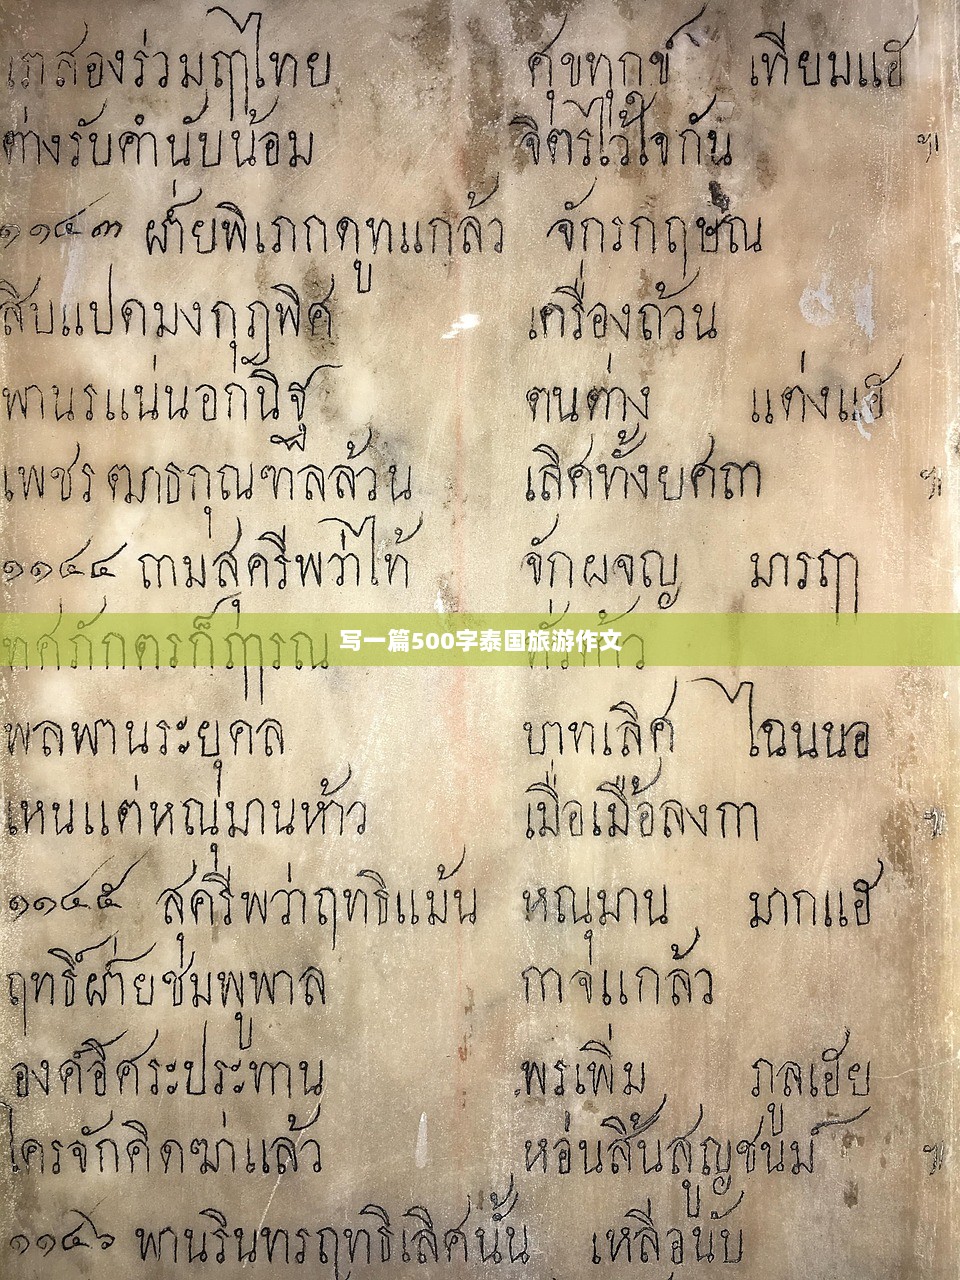 เราสองร่วมฤๅไทย ศุขทุกข์ เทียมแฮ
ต่างรับคำนับน้อม จิตรไว้ใจกัน ฯ
๑๑๔๓ ฝ่ายพิเภกดูทแกล้ว จักรกฤษณ
สิบแปดมงกุฎพิศ เครื่องถ้วน
พานรแน่นอกนิฐ ตนต่าง แต่งแฮ
เพชรฒาธกุณฑลล้วน เลิศทั้งยศถา ฯ
๑๑๔๔ ถามสุครีพว่าไท้ จักผจญ มารฤๅ
ทศภักตรก็ฤๅรณ หัวห้าว
写一篇500字泰国旅游作文
พลพานระยุคล บาทเลิศ ไฉนนอ
เหนแต่หณุมานห้าว เมื่อเมื้อลงกา ฯ
๑๑๔๕ สุครีพว่าฤทธิแม้น หณุมาน มากแฮ
ฤทธิ์ฝ่ายชุมพูพาล กาจแกล้ว
องค์อิศระประทาน พรเพิ่ม ภูลเฮย
ใครจักคิดฆ่าแล้ว ห่อนสิ้นสูญชนม์ ฯ
๑๑๔๖ พานรินทรฤทธิเลิศนั้น เหลือนับ